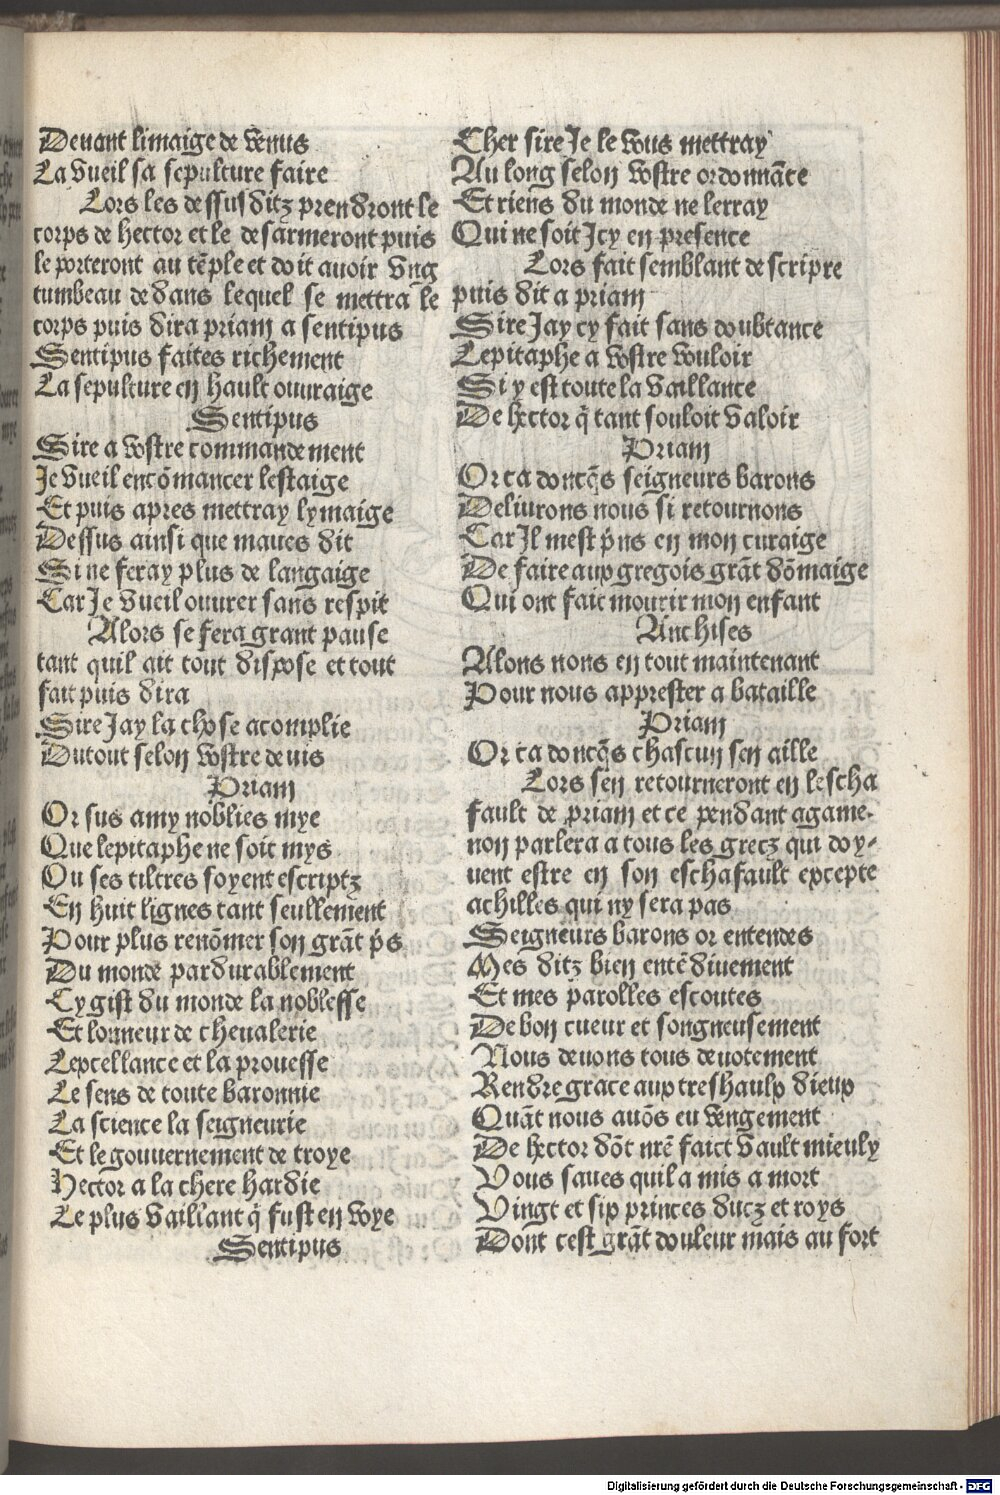 Deuant limaige de venus
La vueil sa sepulture faire
Lors les dessusditz prendront le
corps de hector et le desarmeront puis
le porteront au tẽple et doit auoir vng
tumbeau dedans lequel se mettra le
corps puis dira priam a sentipus
Sentipus faites richement
La sepulture en hault ouuraige
Sentipus
Sire a vostre commandement
Je vueil encõmancer lestaige
Et puis apres mettray lymaige
Dessus ainsi que maues dit
Si ne feray plus de langaige
Car Je vueil ouurer sans respit
Alors se fera grant pause
tant quil ait tout dispose et tout
fait puis dira
Sire Jay la chose acomplie
Dutout selon vostre deuis
Priam
Or sus amy noblies mye
Que lepitaphe ne soit mys
Ou ses tiltres soyent escriptz
En huit lignes tant seullement
Pour plus renõmer son grãt p̃s
Du monde pardurablement
Cy gist du monde la noblesse
Et lonneur de cheualerie
Lexcellance et la prouesse
Le sens de toute baronnie
La science la seigneurie
Et le gouuernement de troye
Hector a la chere hardie
Le plus vaillant q̃ fust en voye
Sentipus
Cher sire Je le vous mettray
Au long selon vostre ordonnãce
Et riens du monde ne lerray
Qui ne soit Jcy en presence
Lors fait semblant descripre
puis dit a priam
Sire Jay cy fait sans doubtance
Lepitaphe a vostre vouloir
Si y est toute la vaillance
De hector q̃ tant souloit valoir
Priam
Or ca doncq̃s seigneurs barons
Deliurons nous si retournons
Car Jl mest p̃ns en mon curaige
De faire aux gregois grãt dõmaige
Qui ont fait mourir mon enfant
Anchises
Alons nons en tout maintenant
Pour nous apprester a bataille
Priam
Or ca doncq̃s chascun sen aille
Lors sen retourneront en lescha
fault de priam et ce pendant agame-
non parlera a tous les grecz qui doy-
uent estre en son eschafault excepte
achilles qui ny sera pas
Seigneurs barons or entendes
Mes ditz bien entẽdiuement
Et mes parolles escoutes
De bon cueur et songneusement
Nous deuons tous deuotement
Rendre grace aux treshaulx dieux
Quãt nous auõs eu vengement
De hector dõt nr̃e faict vault mieulx
Vous saues quil a mis a mort
Vingt et six princes ducz et roys
Dont cest grãt douleur mais au fort
Digitalisierung gefördert durch die Deutsche Forschungsgemeinschaft - DFG